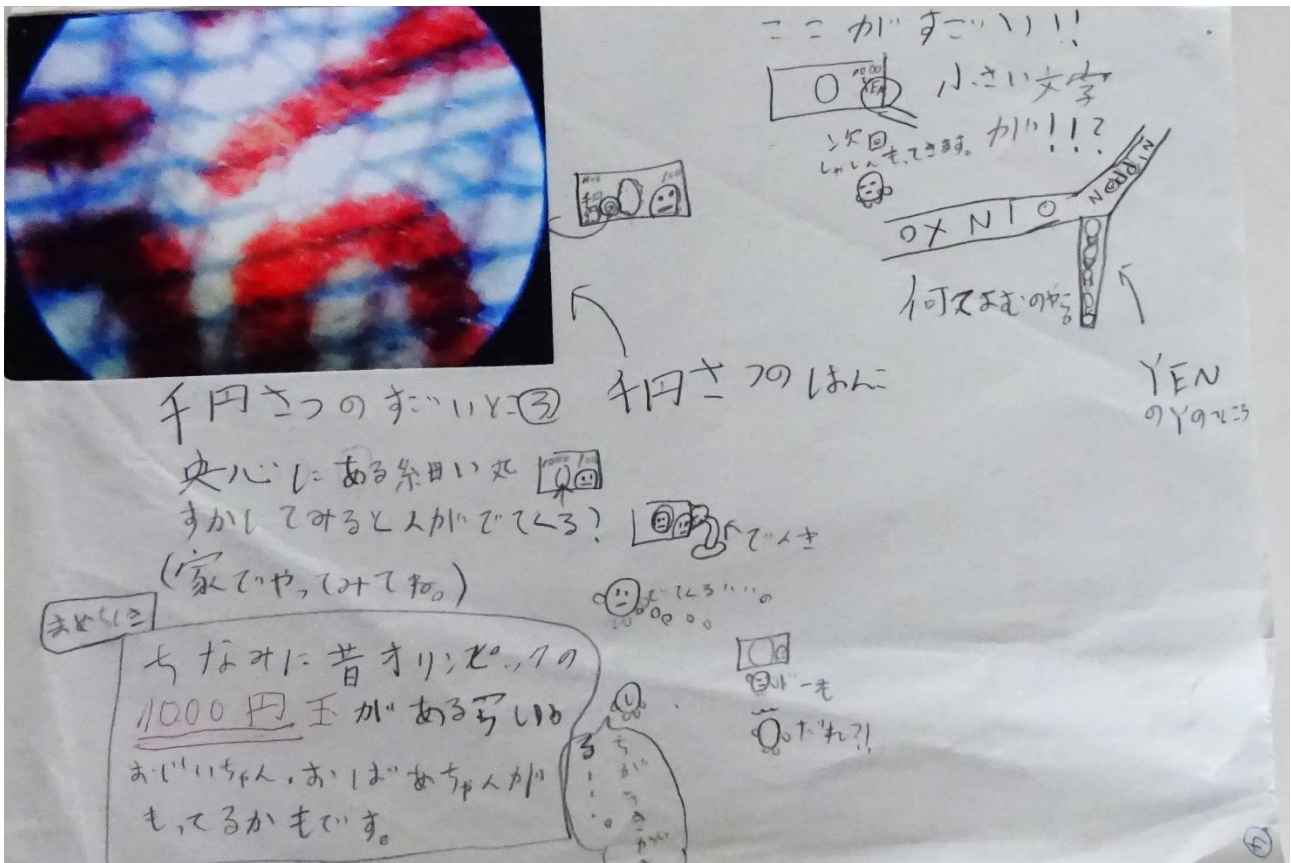 ここがすごい!!
1000
YEN
小さい文字
が!!?
次回
しゃしんもってきます。
NIPPON
OXNIO
何てよむのやら
YEN
のYのところ
千円さつのはんこ
千円さつのすごいところ③
央心にある細い丸
すかしてみると人がでてくる?
でんき
(家でやってみてね。)
でてくる
まめちしき
ちなみに昔オリンピックの
1000円玉がある
おじいちゃん、おばあちゃんが
もってるかもです。
どーも
だれ?!